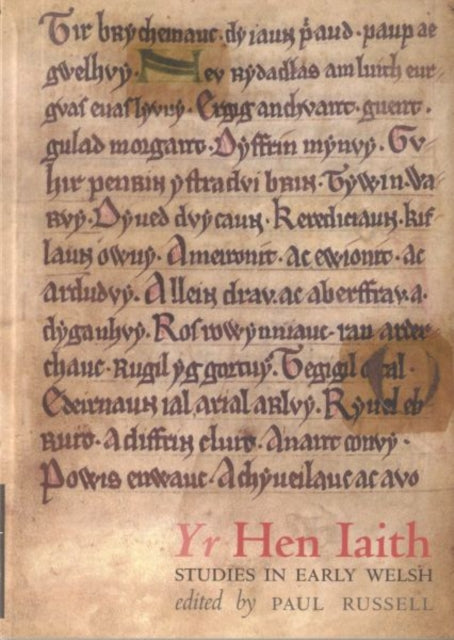 Tir brycheinauc. dy iaun p̄aud. paup ae
gvelhvy. Nev rydadlas am luith eur
gvas euas lyvry. Ergig anchvant. guent.
gulad morgant. Dyffrin mynvy. Gv
hir penrin ystradvi brin. Tywin. Va
rvy. Dyued dvy caun. Kerediciaun. kif
laun owny. A meironit. ac ewionit. ac
ardudvy. A llein drav. ac aberffrav. a.
dyganhvy. Ros rowynniauc. ran arder
chauc. Rugil yg gortuy. Tegigil
Edeirnaun ial, arial arlvy. Ryuel
ruro. A diffrin cluit. A nant convy.
Powis enwauc. A chyueilauc ac avo
Yr Hen Iaith
STUDIES IN EARLY WELSH
edited by PAUL RUSSELL